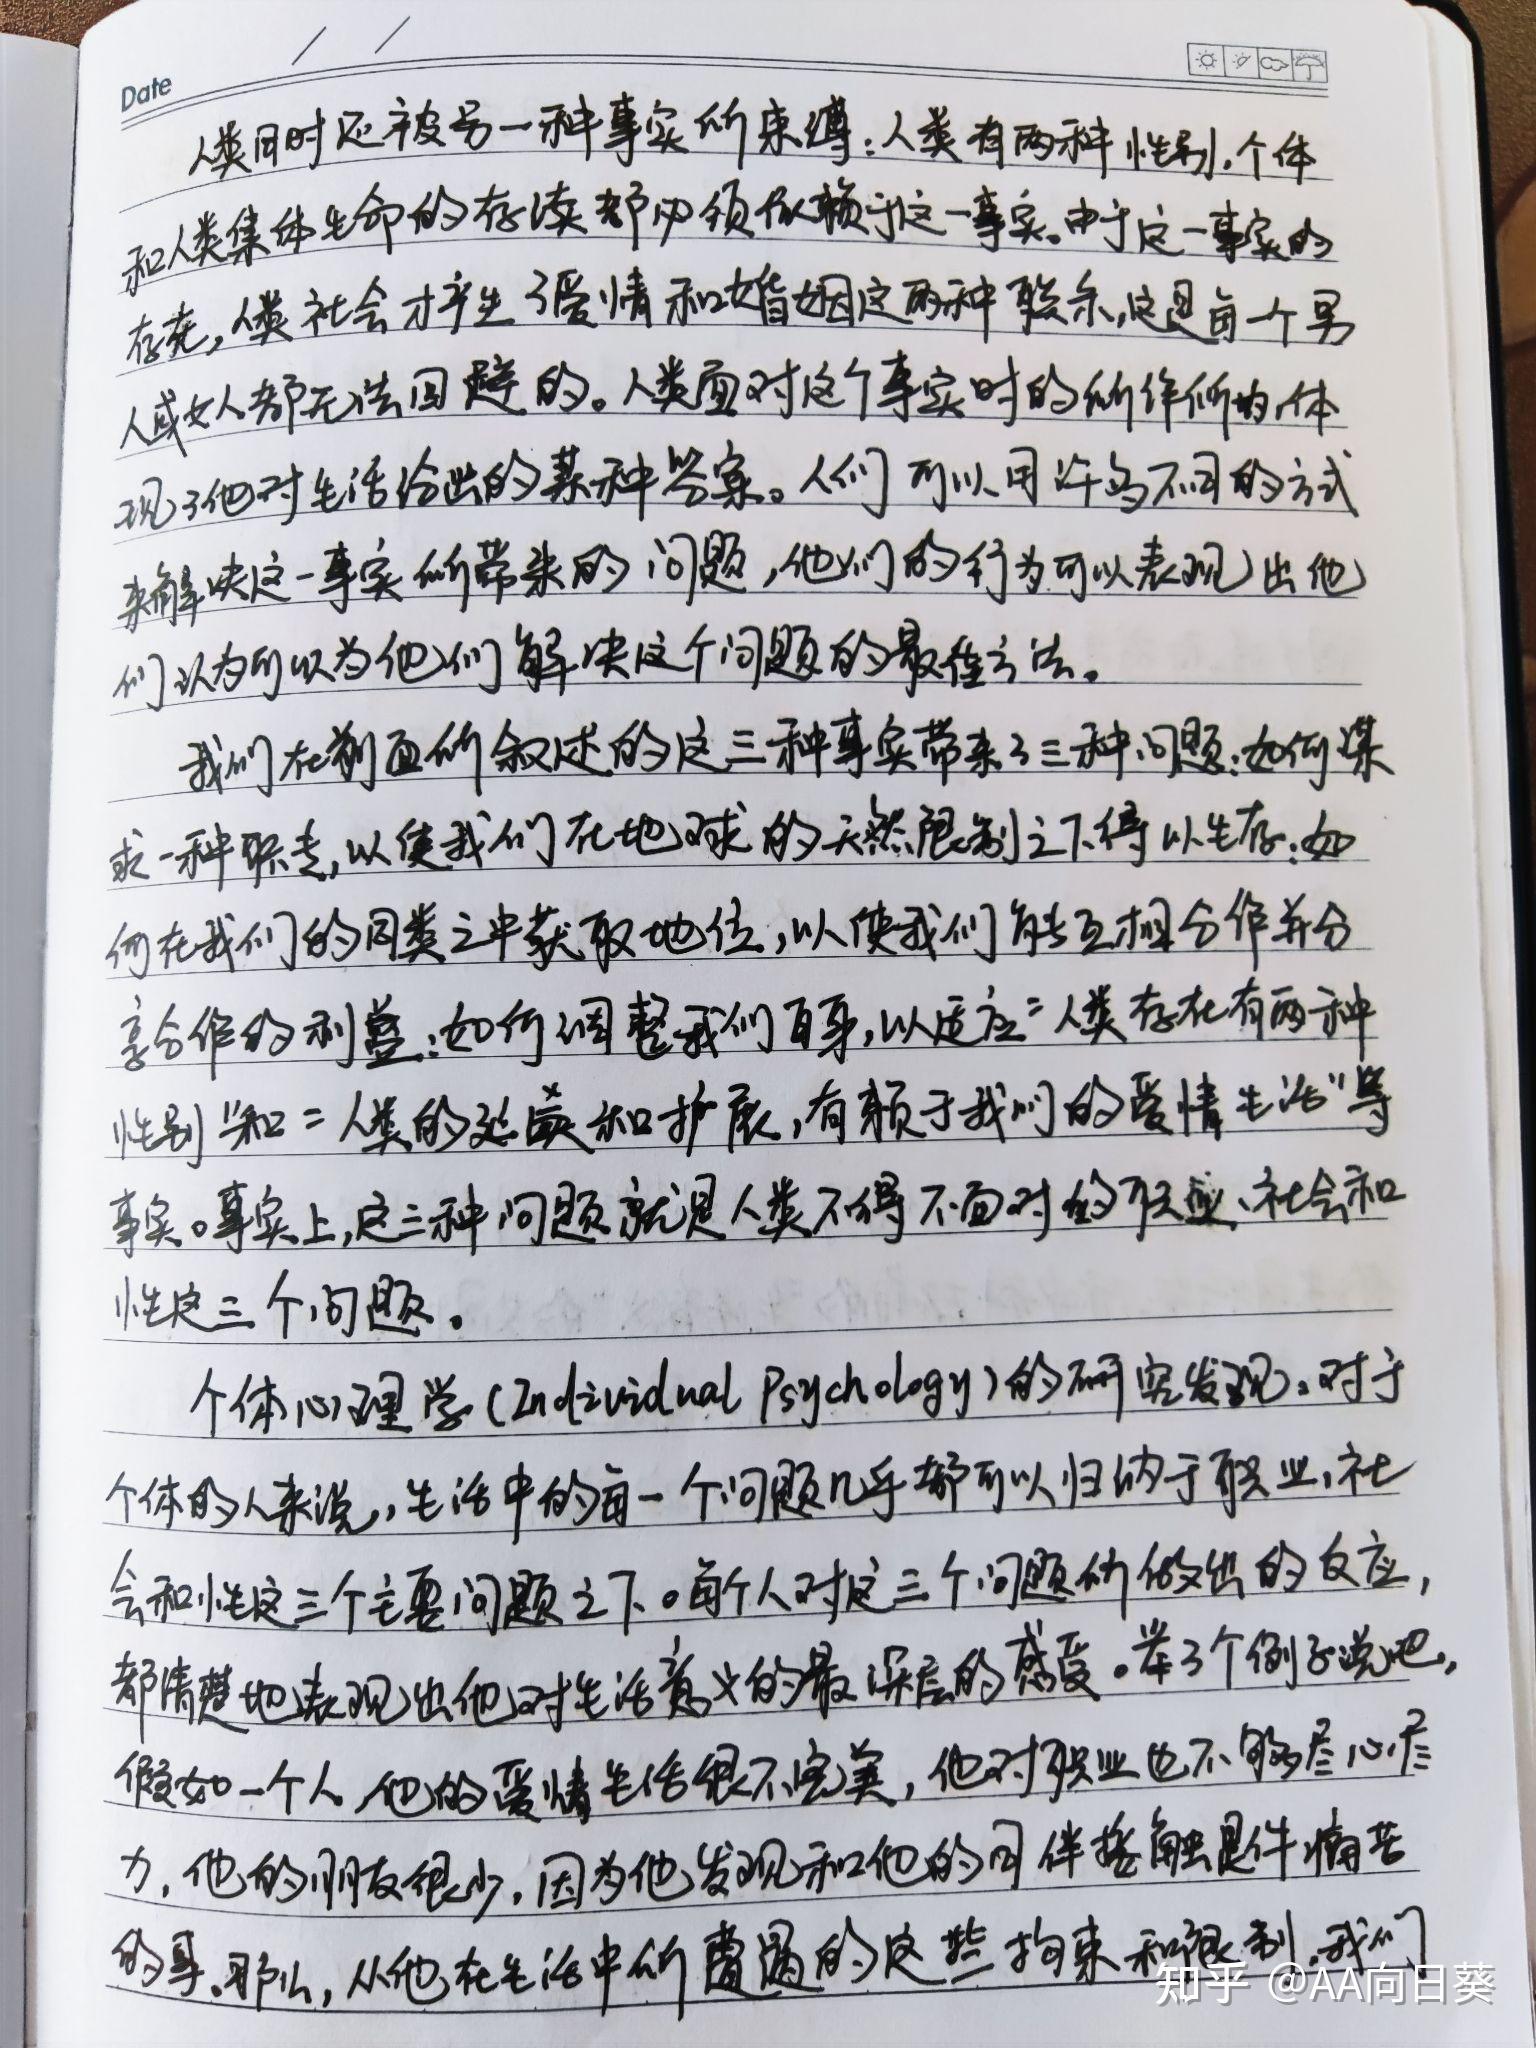 Date
人类同时还被另一种事实所束缚：人类有两种性别，个体
和人类集体生命的存续都必须依赖于这一事实。由于这一事实的
存在，人类社会才产生了爱情和婚姻这两种联系，这是每一个男
人或女人都无法回避的。人类面对这个事实时的所作所为，体
现了他对生活给出的某种答案。人们可以用许多不同的方式
来解决这一事实所带来的问题，他们的行为可以表现出他
们认为可以为他们解决这个问题的最佳方法。
我们在前面所叙述的这三种事实带来了三种问题：如何谋
求一种职业，以使我们在地球的天然限制之下得以生存；如
何在我们的同类之中获取地位，以使我们能互相合作并分
享合作的利益；如何调整我们自身，以适应“人类存在有两种
性别”和“人类的延续和扩展，有赖于我们的爱情生活”等
事实。事实上，这三种问题就是人类不得不面对的职业、社会和
性这三个问题。
个体心理学(Individual Psychology)的研究发现，对于
个体的人来说，生活中的每一个问题几乎都可以归纳于职业、社
会和性这三个主要问题之下。每个人对这三个问题所做出的反应，
都清楚地表现出他对生活意义的最深层的感受。举了个例子说吧，
假如一个人，他的爱情生活很不完美，他对职业也不够尽心尽
力，他的朋友很少，因为他发现和他的同伴接触是件痛苦
的事。那么，从他在生活中所遭遇的这些拘束和限制，我们
知乎 @AA向日葵